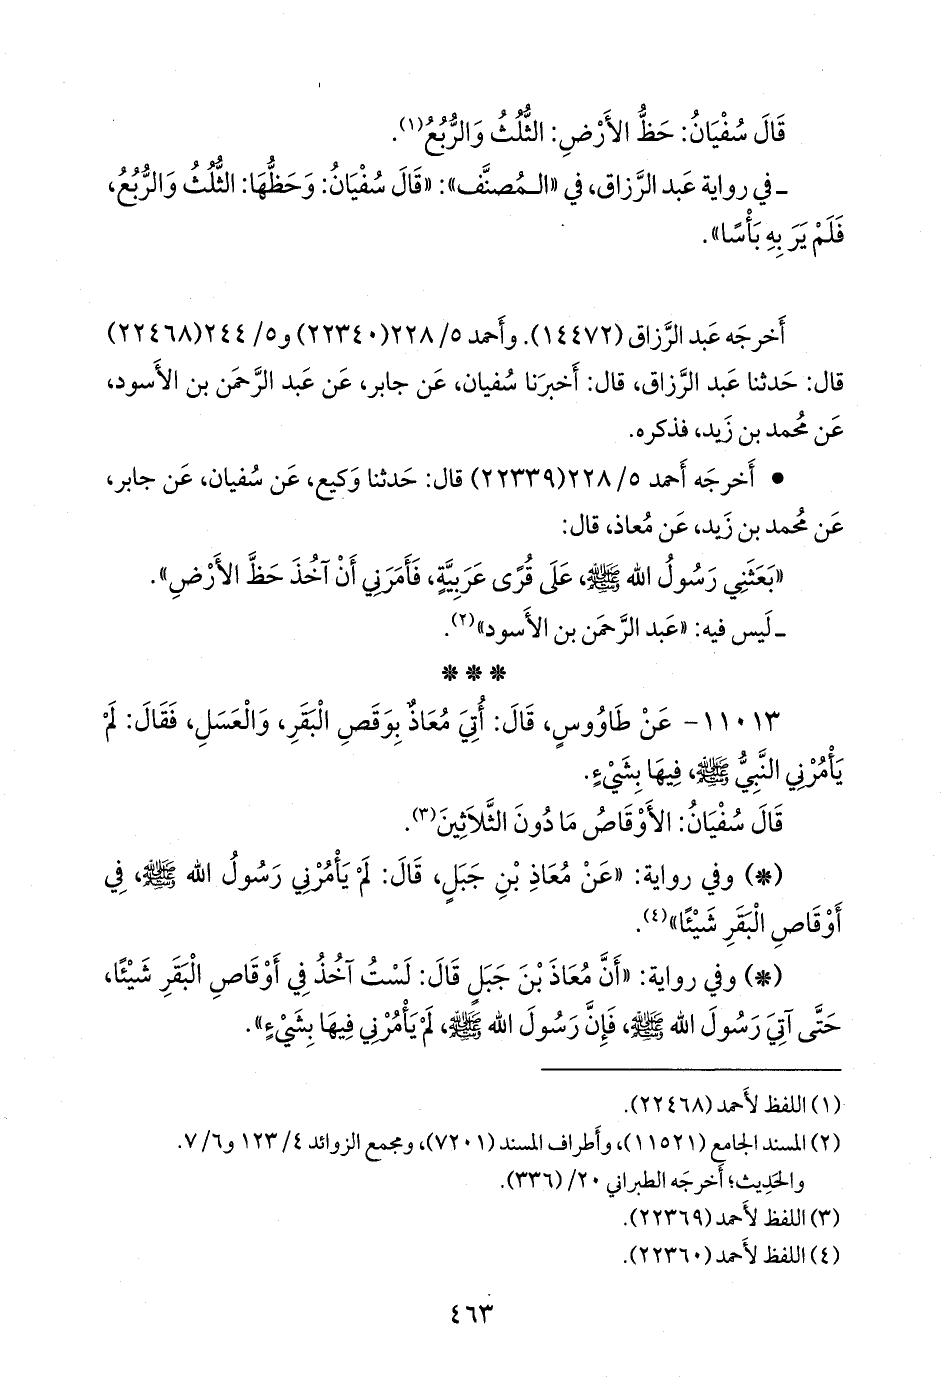 قَالَ سُفْيَانُ: حَظُّ الأَرْضِ: الثُّلُثُ وَالرُّبُعُ(١).
ـ في رواية عَبد الرَّزاق، في «الـمُصنَّف»: «قَالَ سُفْيَانُ: وَحَظُّهَا: الثُّلُثُ وَالرُّبُعُ،
فَلَمْ يَرَ بِهِ بَأْسًا».
أَخرجَه عَبد الرَّزاق (١٤٤٧٢). وأَحمد ٥/ ٢٢٨(٢٢٣٤٠) و٥/ ٢٤٤(٢٢٤٦٨)
قال: حَدثنا عَبد الرَّزاق، قال: أَخبرَنا سُفيان، عَن جابر، عَن عَبد الرَّحمَن بن الأَسود،
عَن مُحمد بن زَيد، فذكره.
• أَخرجَه أَحمد ٥/ ٢٢٨(٢٢٣٣٩) قال: حَدثنا وَكيع، عَن سُفيان، عَن جابر،
عَن مُحمد بن زَيد، عَن مُعاذ، قال:
«بَعَثَنِي رَسُولُ الله ﷺ، عَلَى قُرًى عَرَبِيَّةٍ، فَأَمَرَنِي أَنْ آخُذَ حَظَّ الأَرْضِ».
ـ لَيس فيه: «عَبد الرَّحمَن بن الأَسود»(٢).
* * *
١١٠١٣- عَنْ طَاوُوسٍ، قَالَ: أُتِيَ مُعَاذٌ بِوَقَصِ الْبَقَرِ، وَالْعَسَلِ، فَقَالَ: لَمْ
يَأْمُرْنِي النَّبِيُّ ﷺ، فِيهَا بِشَيْءٍ.
قَالَ سُفْيَانُ: الأَوْقَاصُ مَا دُونَ الثَّلَاثِينَ(٣).
(*) وفي رواية: «عَنْ مُعَاذِ بْنِ جَبَلٍ، قَالَ: لَمْ يَأْمُرْنِي رَسُولُ الله ﷺ، فِي
أَوْقَاصِ الْبَقَرِ شَيْئًا»(٤).
(*) وفي رواية: «أَنَّ مُعَاذَ بْنَ جَبَلٍ قَالَ: لَسْتُ آخُذُ فِي أَوْقَاصِ الْبَقَرِ شَيْئًا،
حَتَّى آتِيَ رَسُولَ الله ﷺ، فَإِنَّ رَسُولَ الله ﷺ، لَمْ يَأْمُرْنِي فِيهَا بِشَيْءٍ».
(١) اللفظ لأَحمد (٢٢٤٦٨).
(٢) المسند الجامع (١١٥٢١)، وأَطراف المسند (٧٢٠١)، ومجمع الزوائد ٤/ ١٢٣ و٦/ ٧.
والحَدِيث؛ أَخرجَه الطبراني ٢٠/ (٣٣٦).
(٣) اللفظ لأَحمد (٢٢٣٦٩).
(٤) اللفظ لأَحمد (٢٢٣٦٠).
٤٦٣